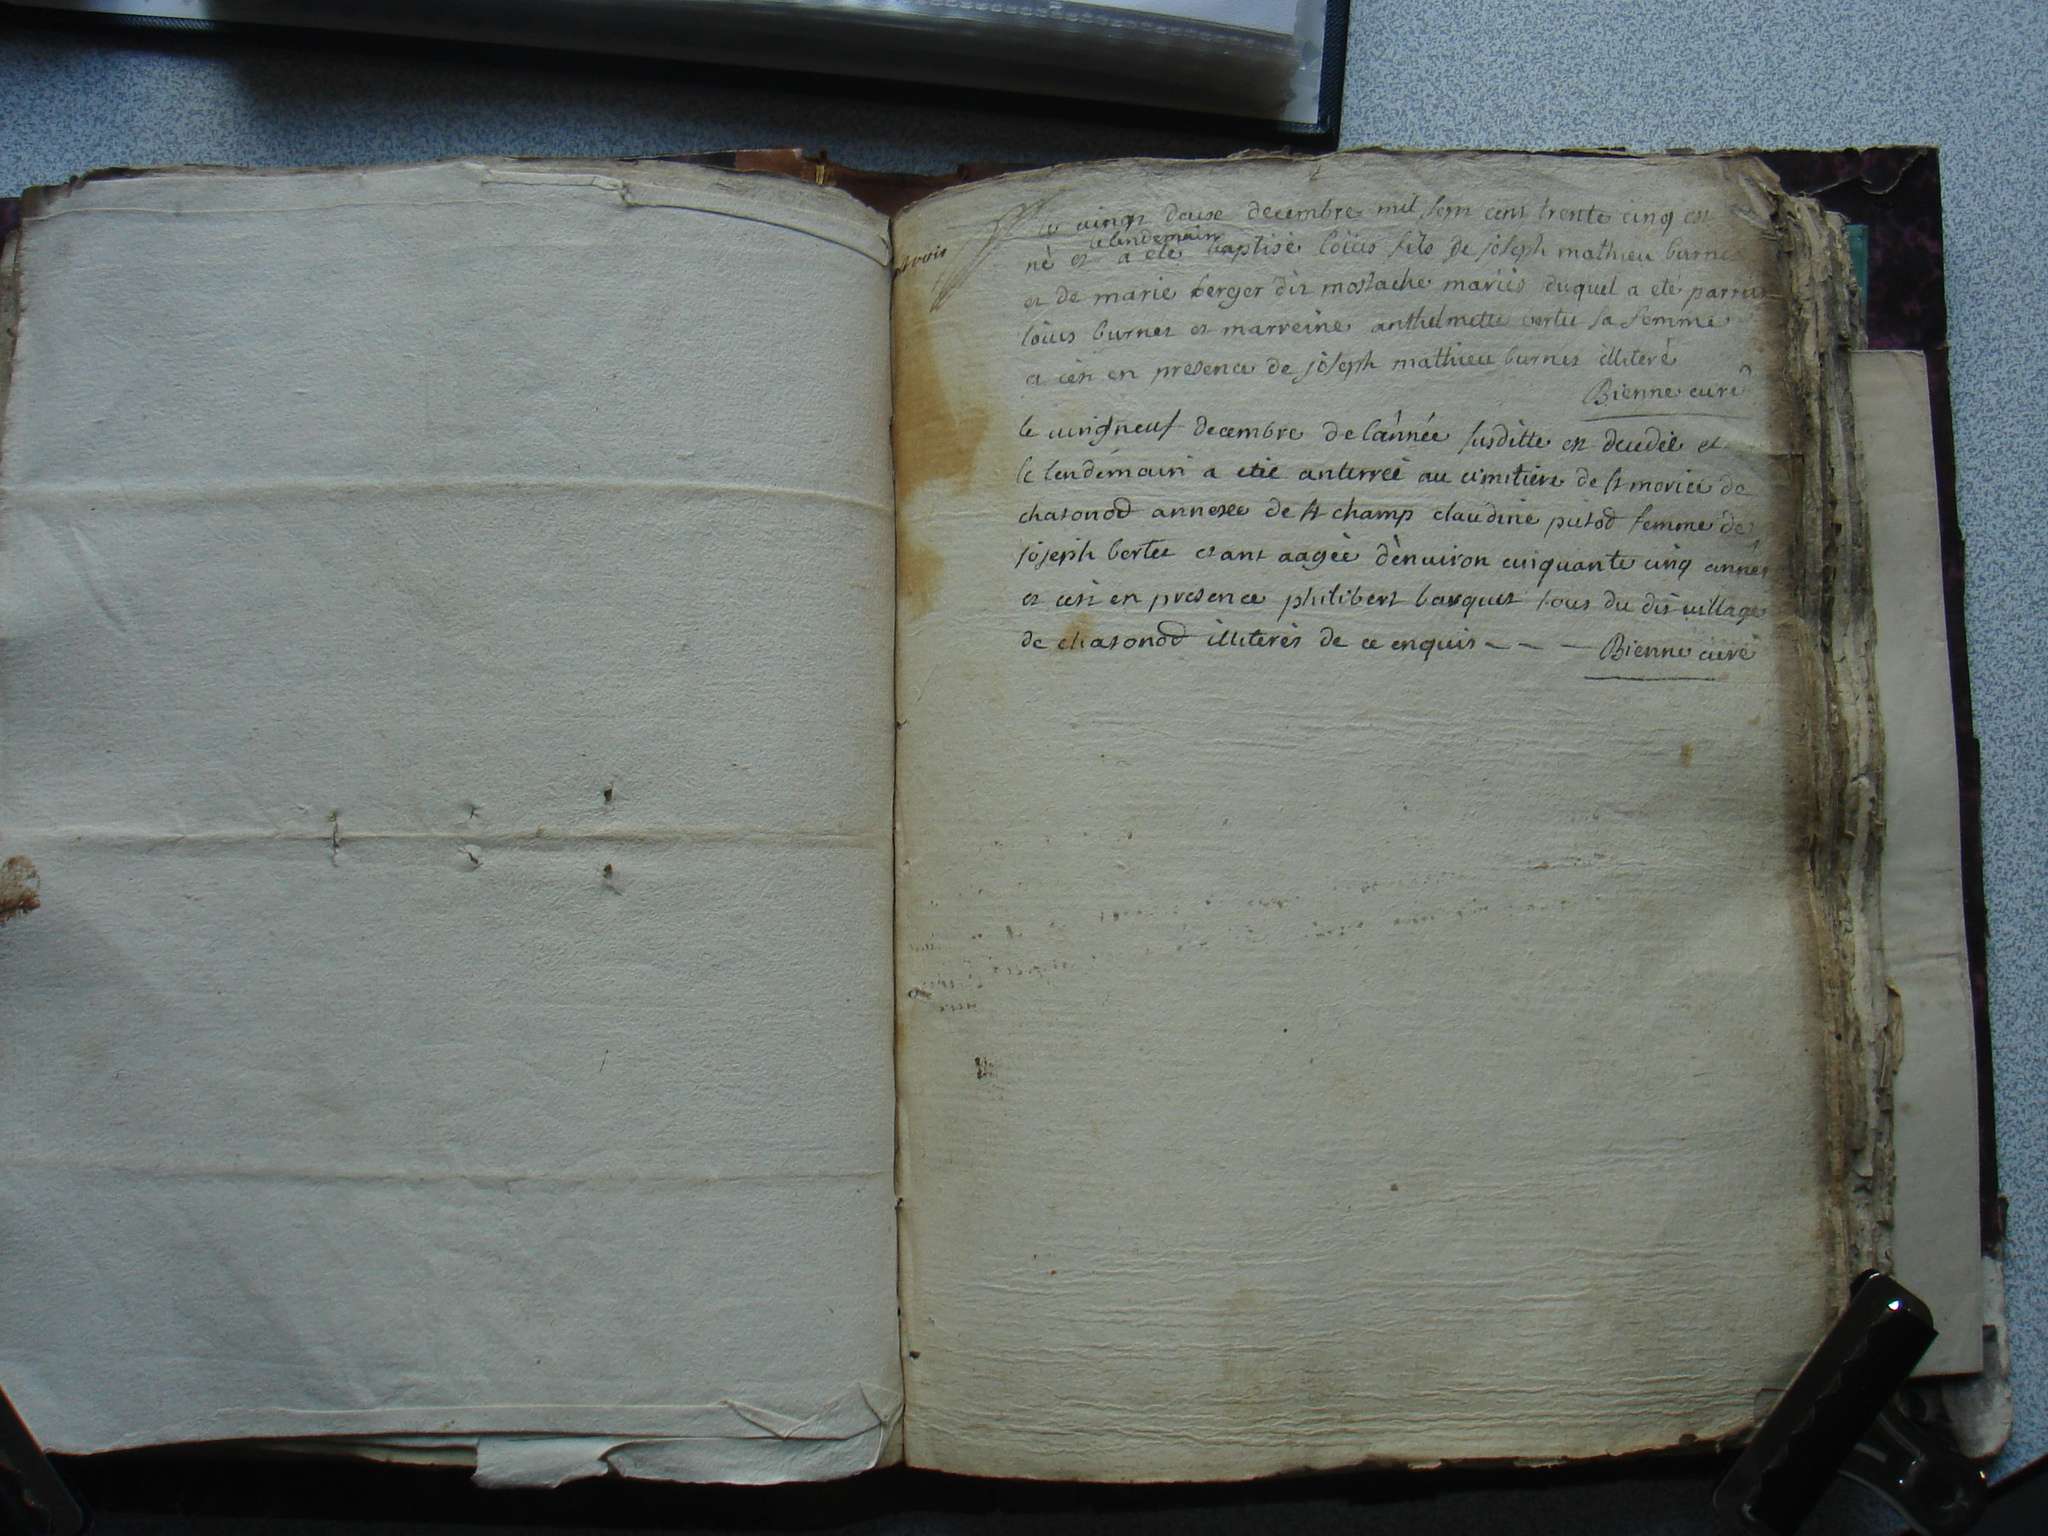 le vingt deuxe decembre mil sept cent trente cinq est
le lendemain
né et a eté baptisé loüis fils de joseph mathieu burnet
et de marie berger dit mostache mariés duquel a eté parrain
loüis burnet et marreine anthelmette bertet sa femme
a cest en presence de joseph mathieu burnet illiteré
Bienne curé
le vingneuf decembre de l'année susditte est decedée et
le lendemain a etée anterrée au cimitiere de st morice de
chatonod annexée de st champ claudine pitod femme de
joseph bertet etant aagée d'environ cinquante cinq années
et cest en presence philibert barquet tous du dit village
de chatonod illiterés de ce enquis - - - Bienne curé